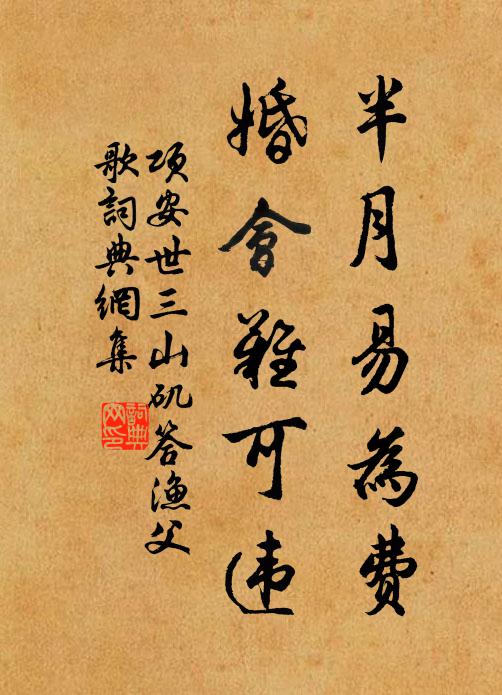 半月易為費
婚會難可违
項安世三山矶答渔父
歌詞典網集
詞典
网印